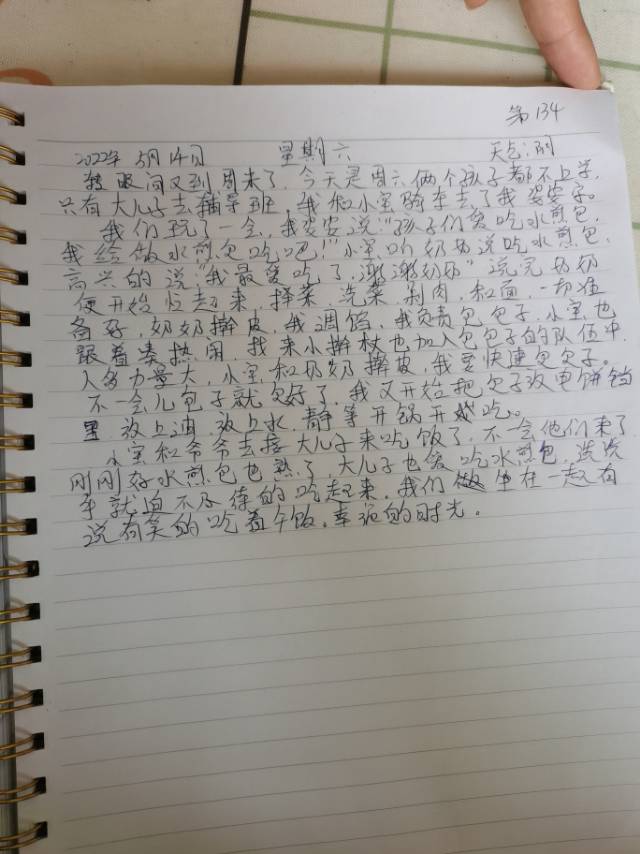 第134
2022年 5月14日 星期六 天气:阴
转眼间又到周末了,今天是周六俩个孩子都不上学,
只有大儿子去辅导班,我和小宝骑车去了我婆婆家。
我们玩了一会,我婆婆说"孩子们爱吃水煎包,
我给做水煎包吃吧!"小宝听奶奶说吃水煎包,
高兴的说"我最爱吃了,谢谢奶奶"说完奶奶
便开始忙起来,择菜,洗菜,剁肉,和面,一切准
备好,奶奶擀皮,我调馅,我负责包包子,小宝也
跟着凑热闹,找来小擀杖也加入包包子的队伍中,
人多力量大,小宝和奶奶擀皮,我要快速包包子。
不一会儿包子就包好了,我又开始把包子放电饼铛
里,放上油,放上水,静等开锅开吃。
小宝和爷爷去接大儿子来吃饭了,不一会他们来了
刚刚好水煎包也熟了,大儿子也爱吃水煎包,洗洗
手就迫不及待的吃起来,我们坐在一起有
说有笑的吃着午饭,幸福的时光。